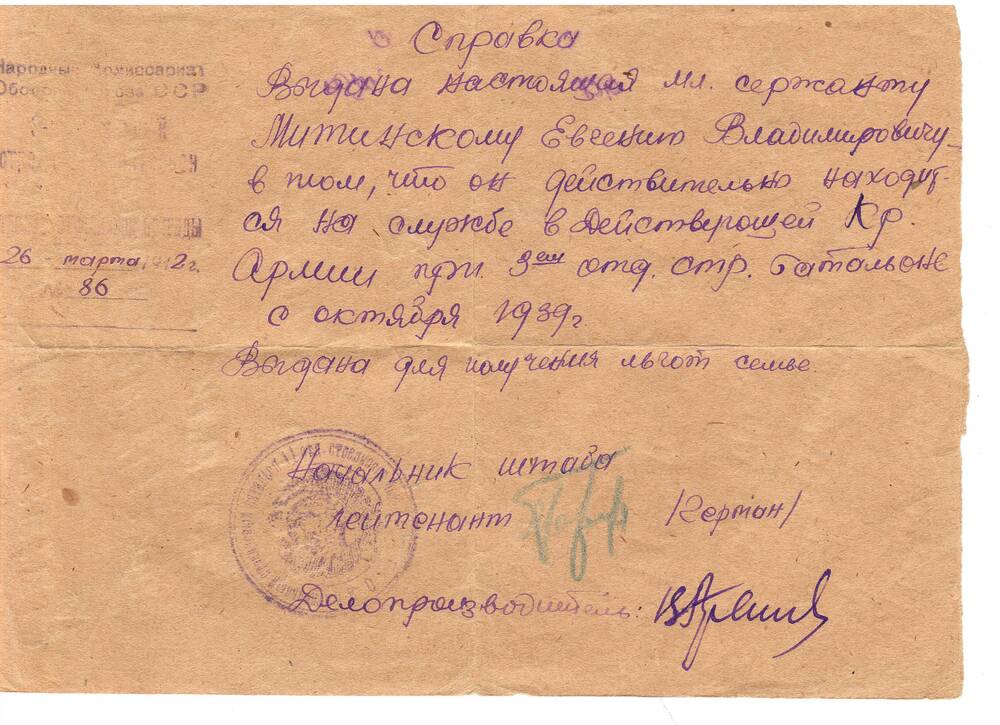 Справка
Народный Комиссариат
Обороны Союза ССР
26 марта 1942г.
№ 86
Выдана настоящая мл. сержанту
Митинскому Евгению Владимировичу
в том, что он действительно находит-
ся на службе в Действующей Кр.
Армии при 3ем отд. стр. батальоне
с октября 1939г.
Выдана для получения льгот семье.
Начальник штаба
лейтенант /Герман/
Делопроизводитель: